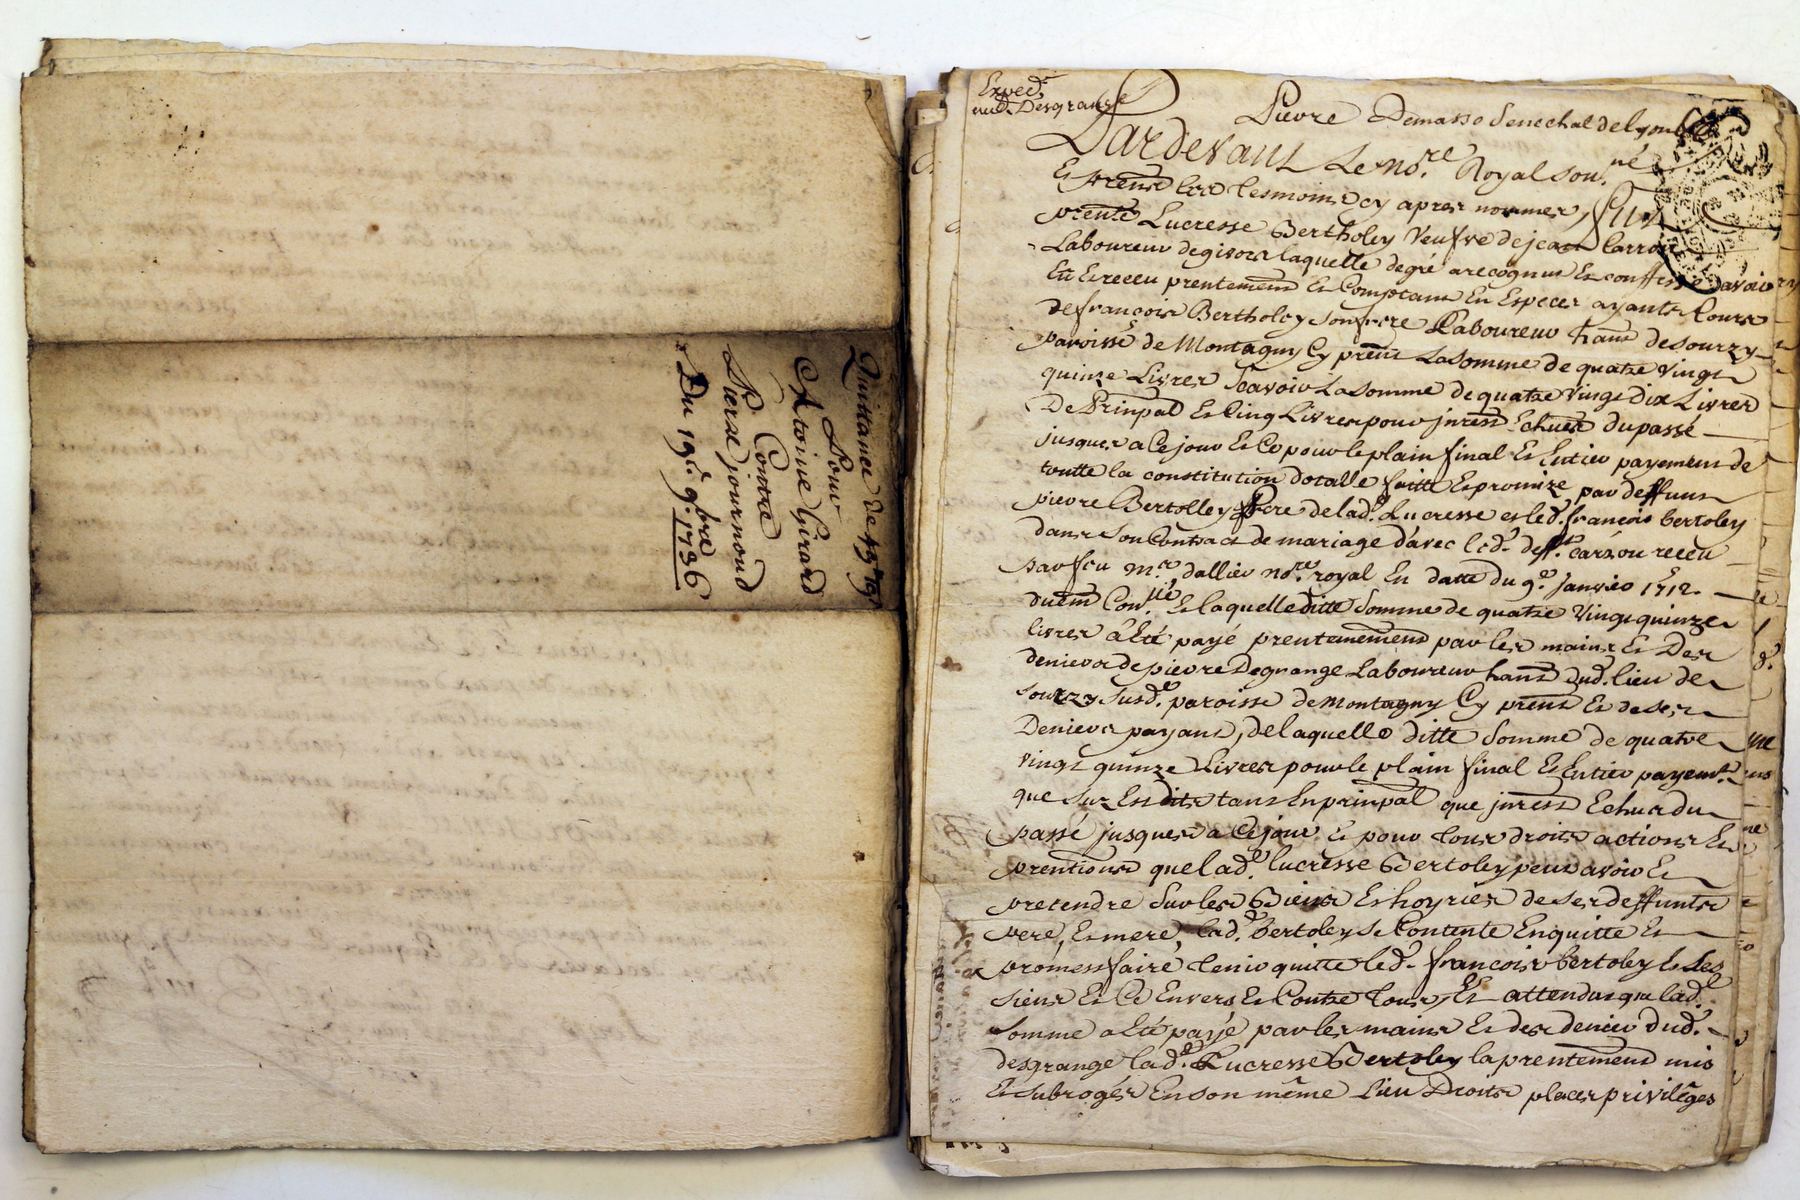 Quittance de 49ˡ 19ˢ
Pour
Antoine Girard
Contre
Pierre journoud
Du 19ᵉ 9.bre 1736
Exped.
aud. Desgrange
Pierre Demasso Senechal de lyon
Pardevant Le no.re Royal sou.né
Et presens les tesmoins cy apres nommes, fut
prente Lucresse Bertholey Veufve de jean Carron
Laboureur degivors laquelle degré a recognus Et confesse davoir
Eü Et receu prentement Et Comptant En Especes ayants Cours
de françois Bertholey son frere Laboureur hant de sourzy
paroisse de Montagny Cy prent La somme de quatre vingt
quinze Livres Scavoir La somme de quatre Vingt dix Livres
De Prinpal Et Cinq Livres pour jnrest Echues du passé
jusques a Ce jour Et Ce pour le plain final Et Entier payement de
toutte la constitution dotalle faitte Et promize par deffunt
pierre Bertolley Pere de lad. Lucresse et led. françois bertoley
dans son Contract de mariage d'avec led. deff.t Carron receu
par feu m.re dallier no.re royal En datte du 9.e janvier 1712.
duëm Con.llé Et laquelle ditte Somme de quatre Vingt quinze
livres a Eté payé prentemement par les mains Et Des
deniers de pierre Degrange Laboureur hant dud. lieu de
sourzy susd. paroisse de Montagny Cy prent Et de ses
Deniers payant, de laquelle ditte Somme de quatre
vingt quinze Livres pour le plain final Et Entier payem.t
que sur Esdits tant En prinpal que jnrest Echus du
passé jusques a Ce jour Et pour tous droits actions Et
prentions que lad. lucresse Bertoley peut avoir Et
pretendre Sur les Biens Et hoyries de ses deffunts
pere, Et mere, lad. bertoley se Contente En quitte Et
promest faire tenir quitte led. françois bertoley Et Les
siens Et Ce Envers Et Contre tous, Et attendu que lad.
somme a Eté payé par les mains Et des denier dud.
desgrange lad. Lucresse Bertoley la prentement mis
Et subrogés En son même Lieu Droits places privilèges